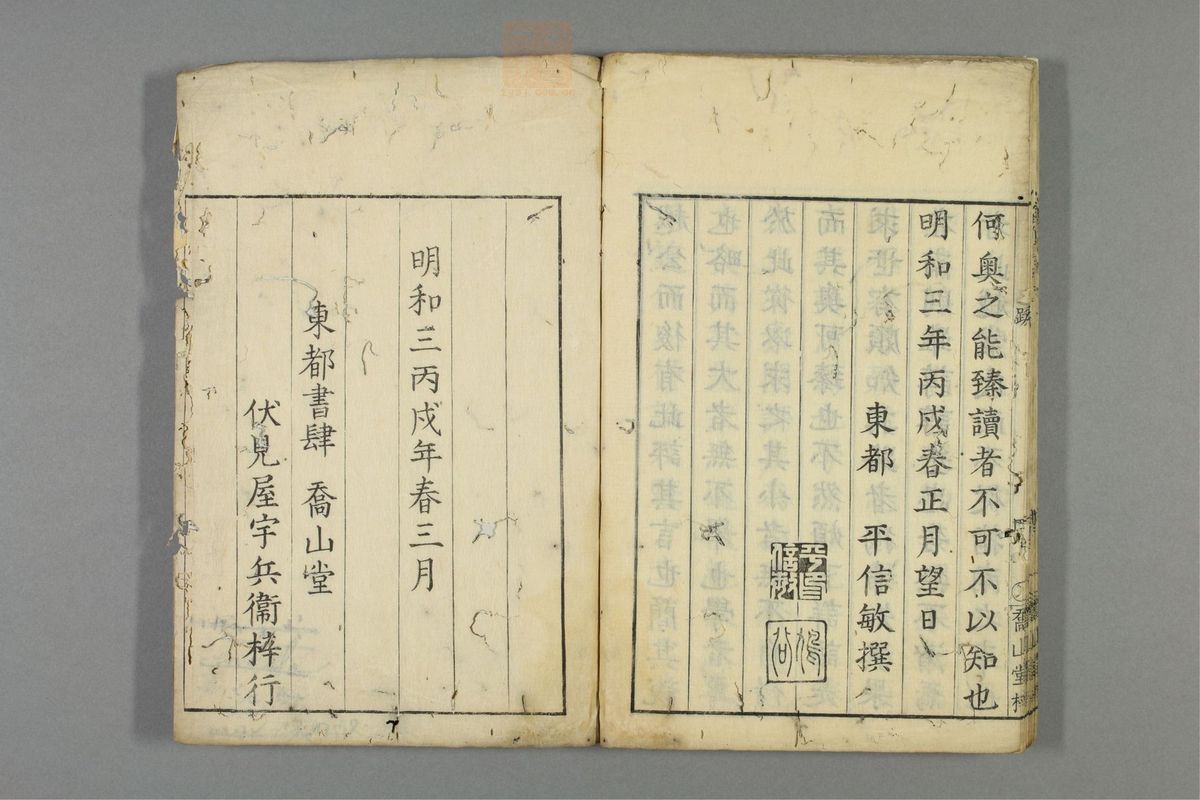 何奧之能臻讀者不可不以知也
明和三年丙戌春正月望日
東都 平信敏撰
明和三丙戌年春三月
東都書肆 喬山堂
伏見屋宇兵衞梓行
跋
喬山堂梓